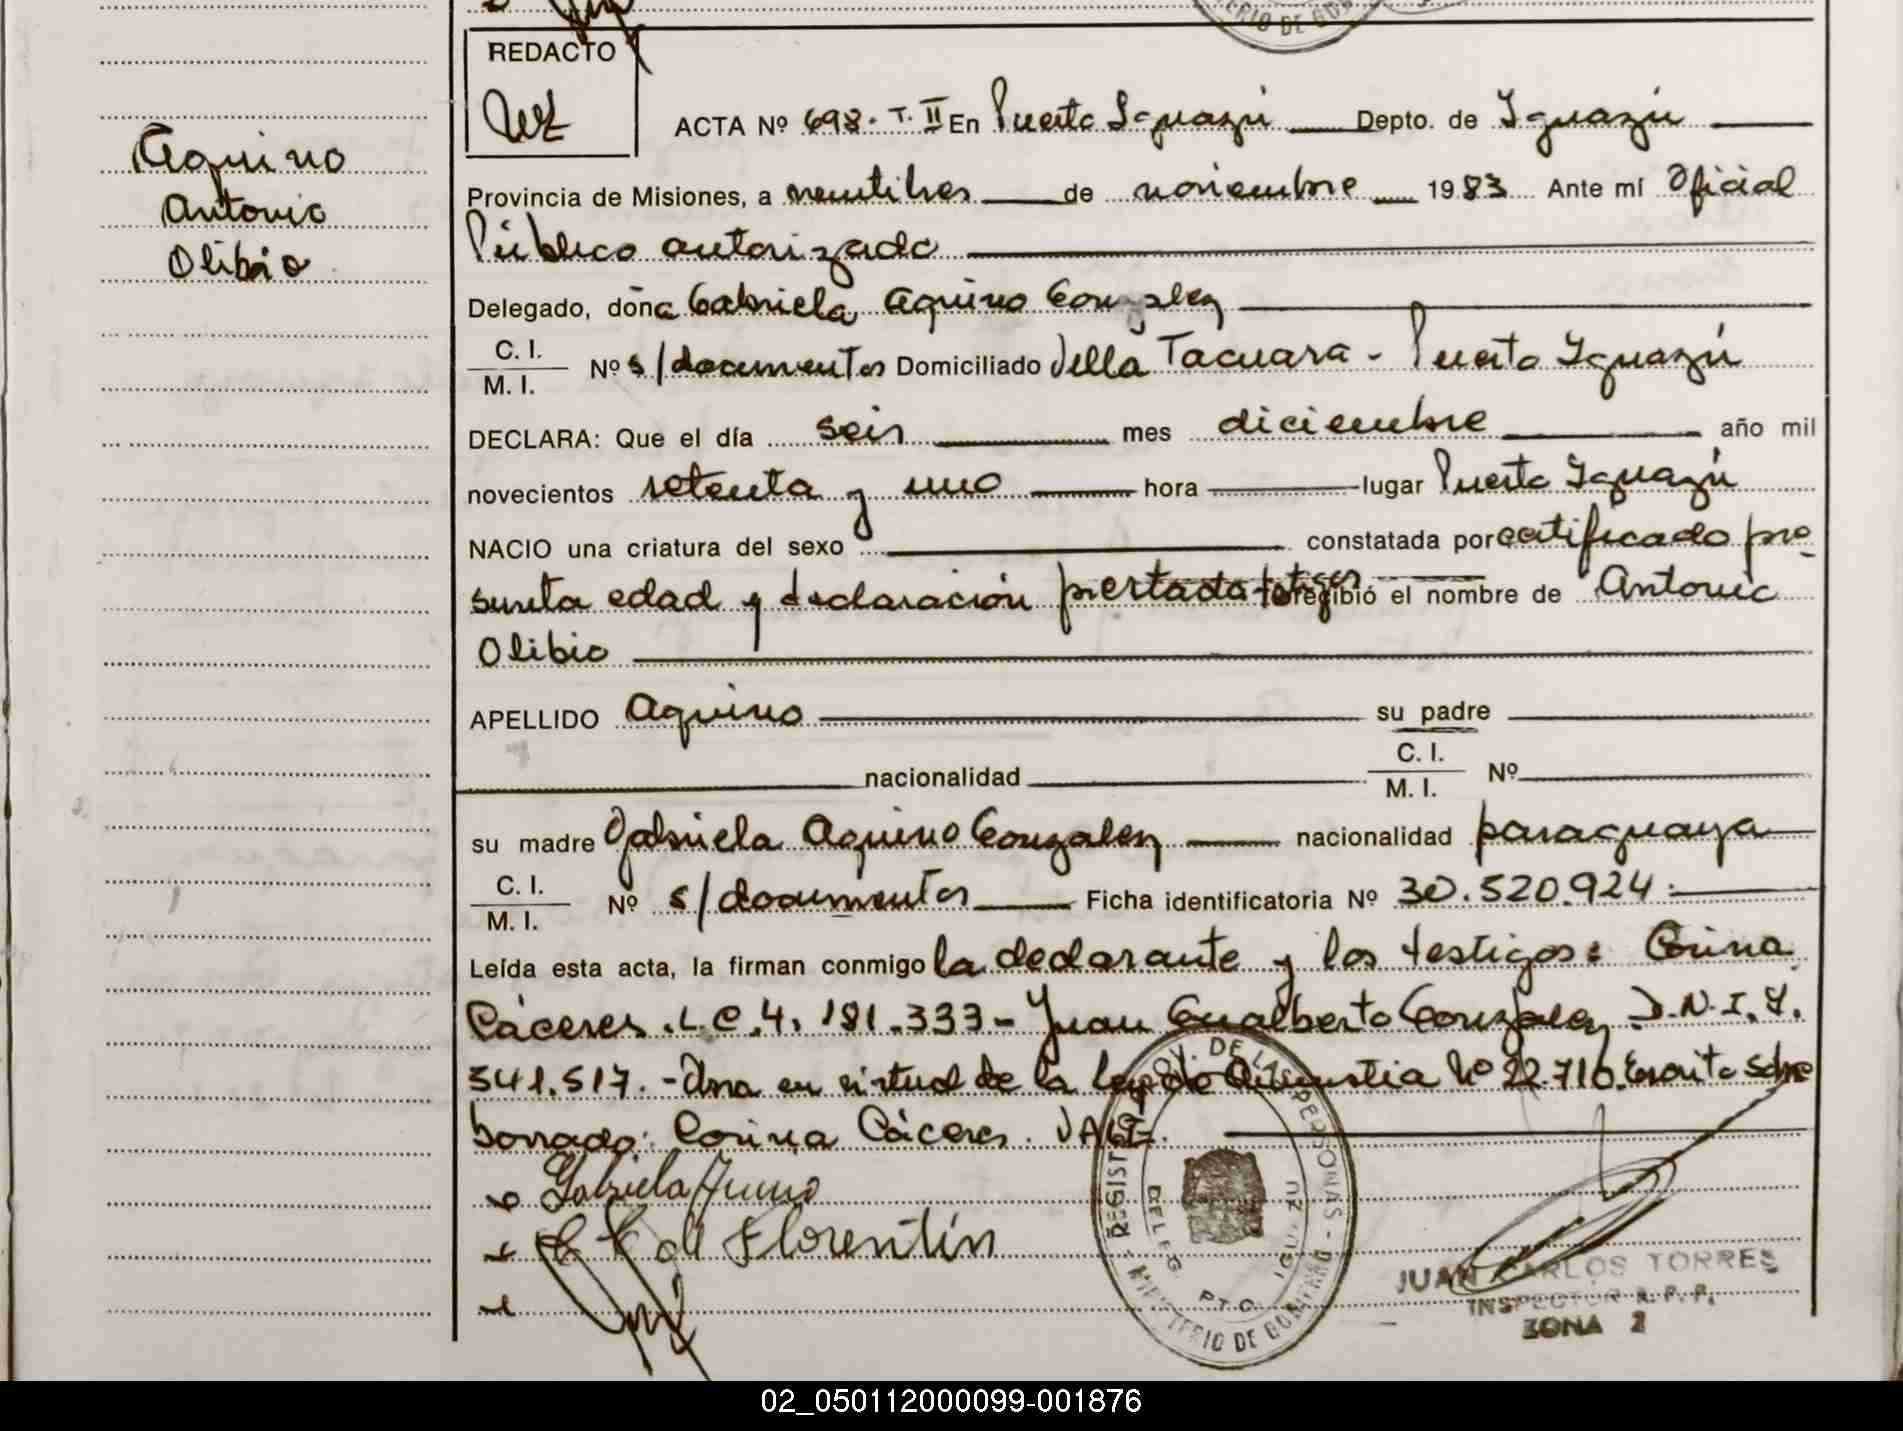 REDACTO
ACTA Nº 698. T. II En Puerto Iguazú Depto. de Iguazú
Aquino
Antonio
Olibio
Provincia de Misiones, a veintitres de noviembre 1983 Ante mí Oficial
Público autorizado
Delegado, doña Gabriela Aquino Gonzalez
C. I.
M. I.
Nº s/documentos Domiciliado Villa Tacuara - Puerto Iguazú
DECLARA: Que el día seis mes diciembre año mil
novecientos setenta y uno hora lugar Puerto Iguazú
NACIO una criatura del sexo constatada por certificado pre
sunta edad y declaración prestada testigos recibió el nombre de Antonio
Olibio
APELLIDO Aquino su padre
nacionalidad C. I.
M. I. Nº
su madre Gabriela Aquino Gonzalez nacionalidad paraguaya
C. I.
M. I.
Nº s/documentos Ficha identificatoria Nº 30.520.924
Leída esta acta, la firman conmigo la declarante y los testigos: Corina
Cáceres. L.C. 4.181.333 - Juan Gualberto Gonzalez D.N.I. 7.
541.517. - Una en virtud de la ley de Amnistia Nº 22.710. Escrito sobre
borrado: Corina Cáceres. VALE.
Gabriela Aquino
de Florentín
REGIST PROV. DE LAS PERSONAS - MINISTERIO DE GOBIERNO
DELEG. PTO. IGUAZU
JUAN CARLOS TORRES
INSPECTOR R. P. P.
ZONA 2
02_050112000099-001876